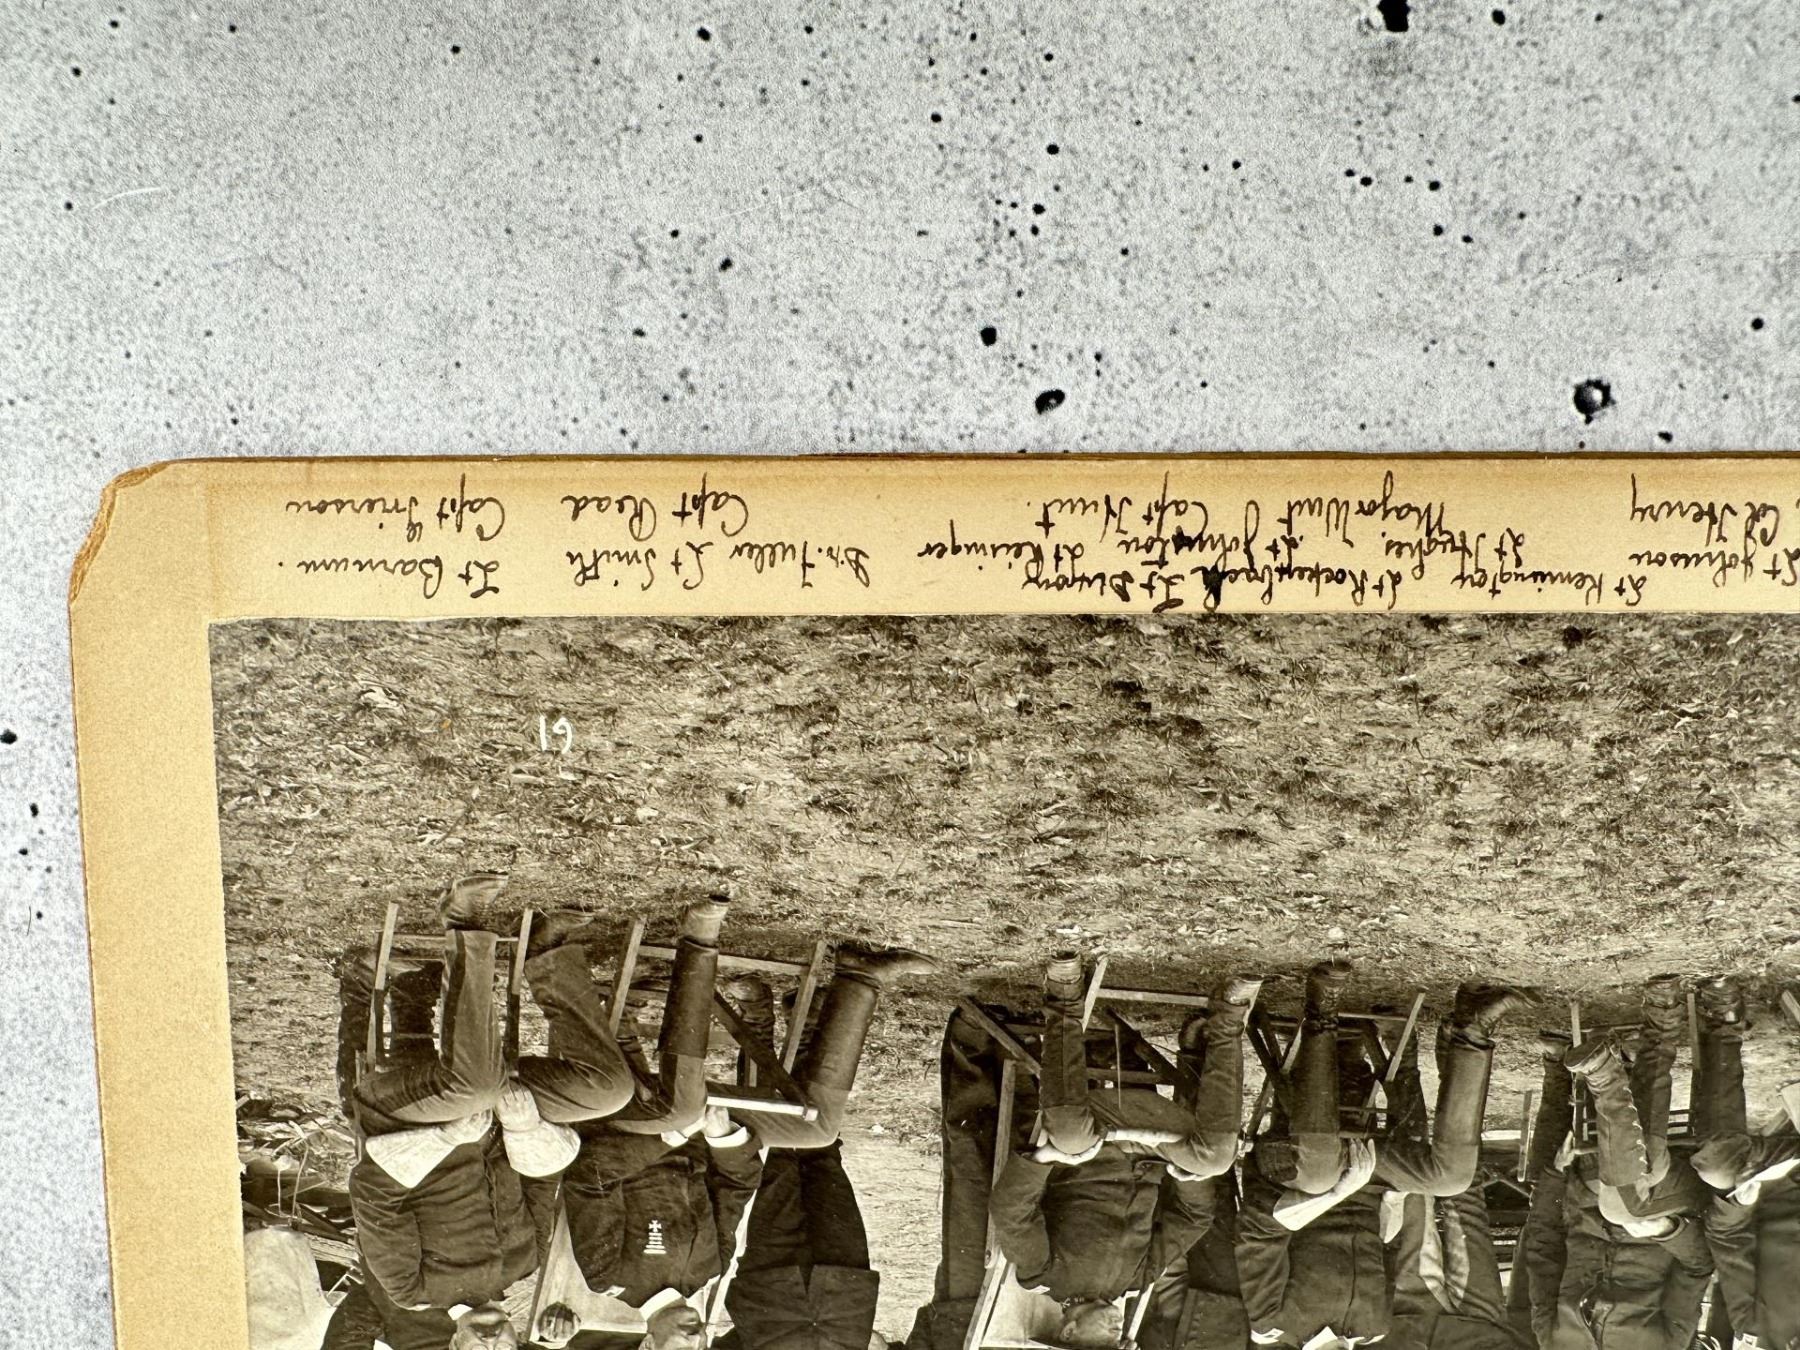 61
Lt Johnson Lt Remington Lt Rockenbach Lt Dr. Fuller Lt Smith Lt Barnum.
Lt Hughes. Lt Johnston, Lt Reisinger
Col Henry Major Wint Capt Hunt. Capt Read Capt Grierson